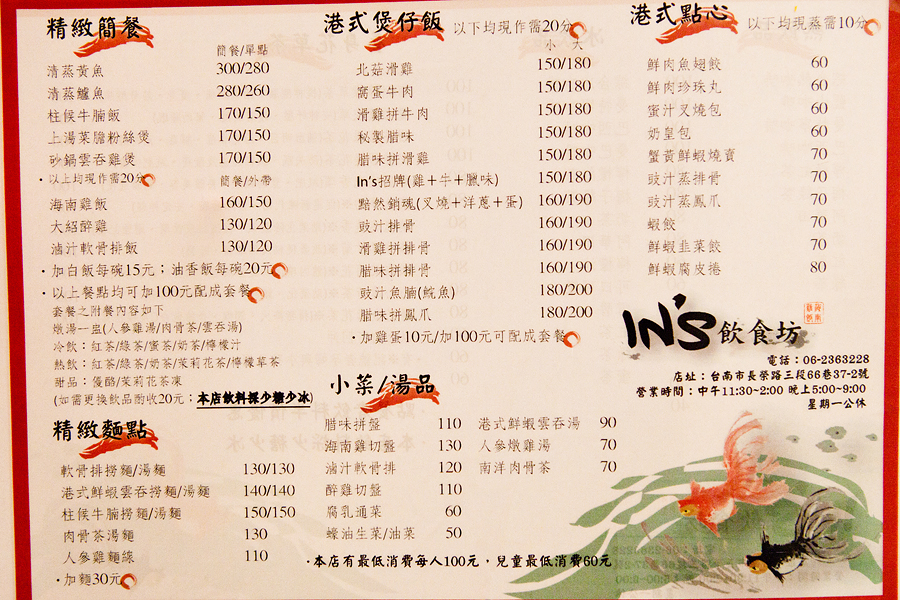 精緻簡餐
簡餐/單點
清蒸黃魚 300/280
清蒸鱸魚 280/260
柱候牛腩飯 170/150
上湯菜膽粉絲煲 170/150
砂鍋雲吞雞煲 170/150
·以上均現作需20分 簡餐/外帶
海南雞飯 160/150
大紹醉雞 130/120
滷汁軟骨排飯 130/120
·加白飯每碗15元；油香飯每碗20元
·以上餐點均可加100元配成套餐
套餐之附餐內容如下
燉湯一盅(人參雞湯/肉骨茶/雲吞湯)
冷飲：紅茶/綠茶/蜜茶/奶茶/檸檬汁
熱飲：紅茶/綠茶/奶茶/茉莉花茶/檸檬草茶
甜品：優酪/茉莉花茶凍
(如需更換飲品酌收20元；本店飲料採少糖少冰)
精緻麵點
軟骨排撈麵/湯麵 130/130
港式鮮蝦雲吞撈麵/湯麵 140/140
柱候牛腩撈麵/湯麵 150/150
肉骨茶湯麵 130
人參雞麵線 110
·加麵30元
港式煲仔飯 以下均現作需20分
小 大
北菇滑雞 150/180
窩蛋牛肉 150/180
滑雞拼牛肉 150/180
秘製腊味 150/180
腊味拼滑雞 150/180
In's招牌(雞+牛+臘味) 150/180
黯然銷魂(叉燒+洋蔥+蛋) 160/190
豉汁排骨 160/190
滑雞拼排骨 160/190
腊味拼排骨 160/190
豉汁魚腩(魷魚) 180/200
腊味拼鳳爪 180/200
·加雞蛋10元/加100元可配成套餐
小菜/湯品
腊味拼盤 110
海南雞切盤 130
滷汁軟骨排 120
醉雞切盤 110
腐乳通菜 60
蠔油生菜/油菜 50
港式鮮蝦雲吞湯 90
人參燉雞湯 70
南洋肉骨茶 70
·本店有最低消費每人100元，兒童最低消費60元
港式點心 以下均現蒸需10分
鮮肉魚翅餃 60
鮮肉珍珠丸 60
蜜汁叉燒包 60
奶皇包 60
蟹黃鮮蝦燒賣 70
豉汁蒸排骨 70
豉汁蒸鳳爪 70
蝦餃 70
鮮蝦韭菜餃 70
鮮蝦腐皮捲 80
IN'S 飲食坊
電話：06-2363228
店址：台南市長榮路三段66巷37-2號
營業時間：中午11:30~2:00 晚上5:00~9:00
星期一公休